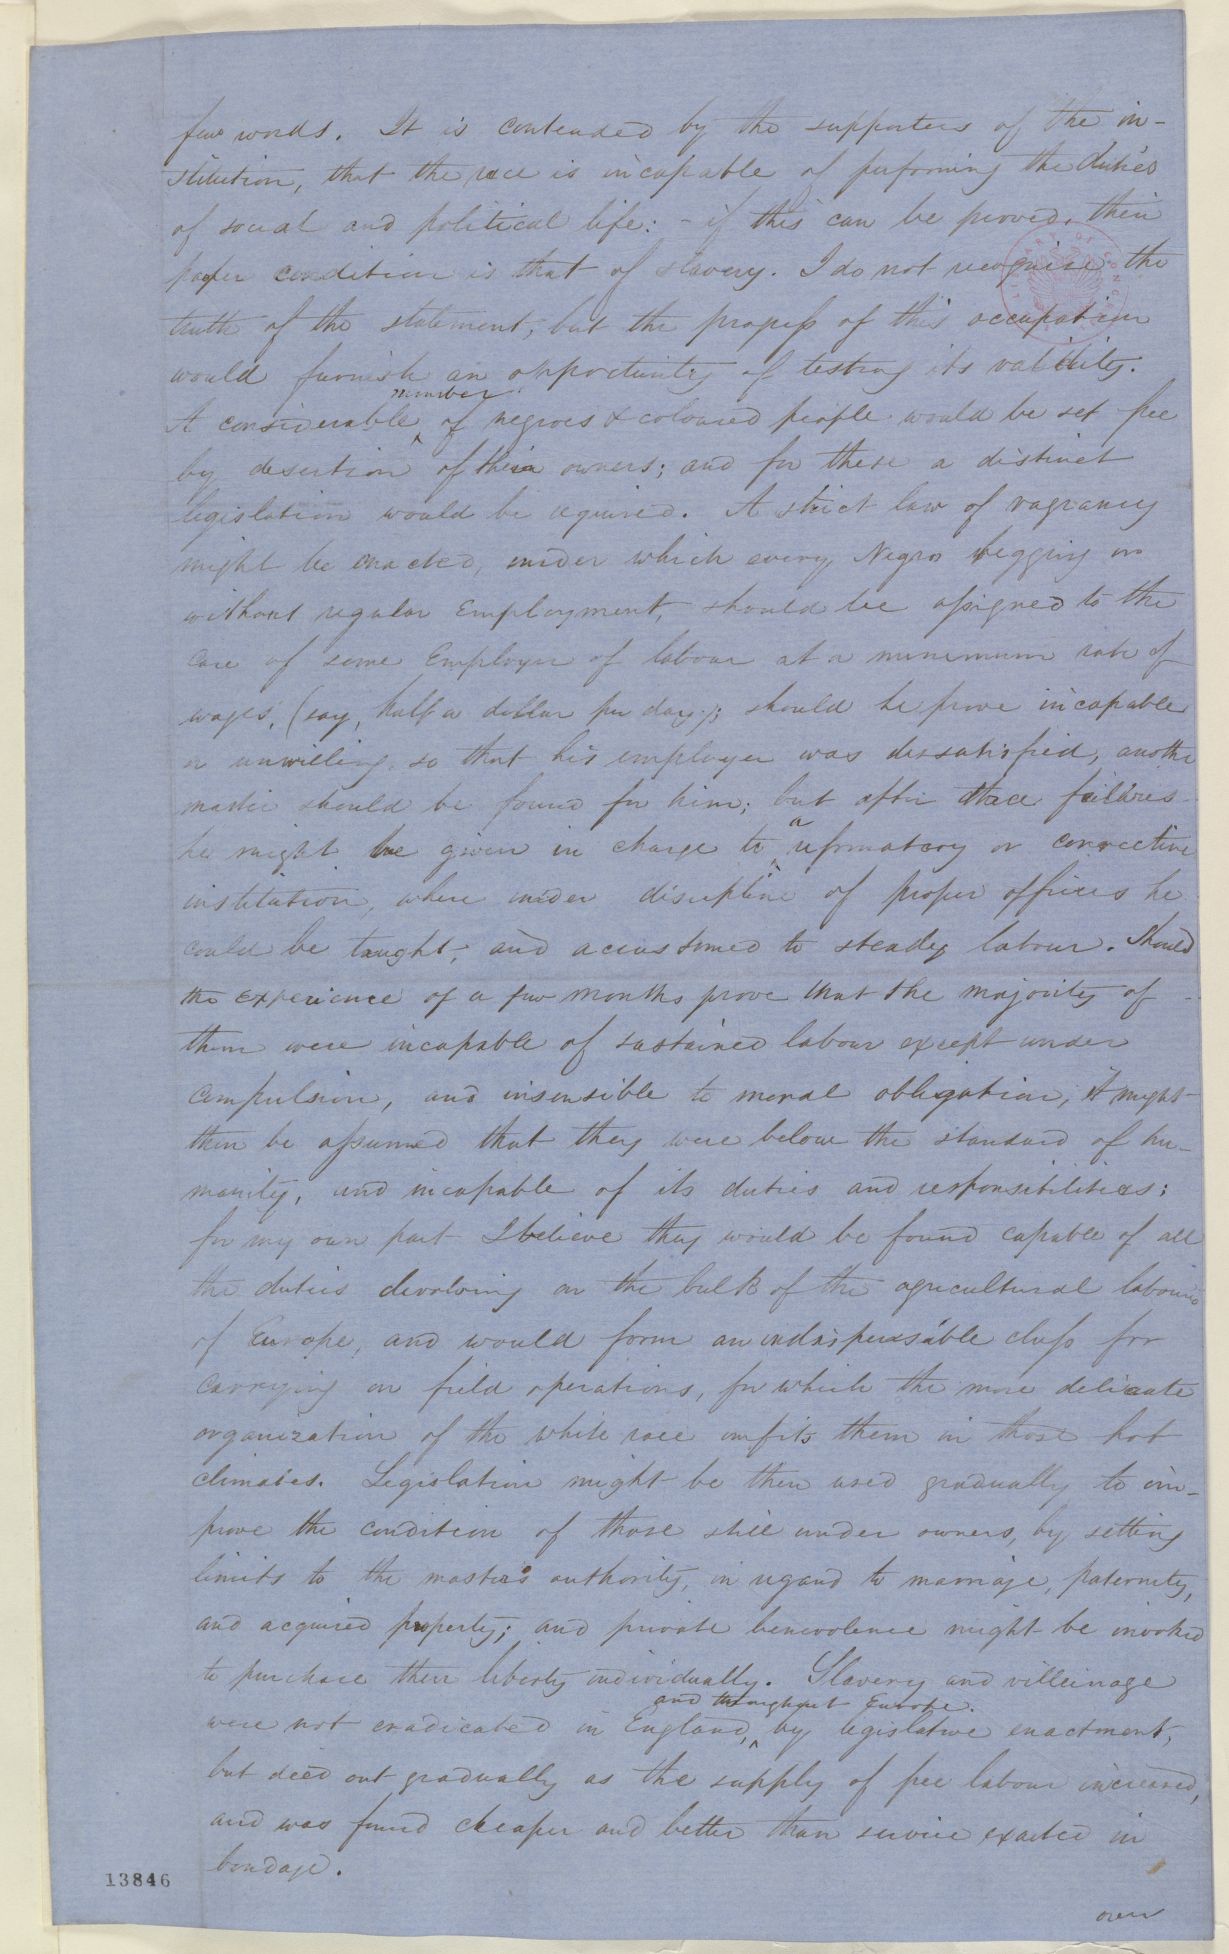 few words. It is contended by the supporters of the in-
stitution, that the race is incapable of performing the duties
of social and political life: - if this can be proved, their
proper condition is that of slavery. I do not recognise the
truth of the statement, but the progress of this occupation
would furnish an opportunity of testing its validity.
number
A considerable ^ of negroes & coloured people would be set free
by desertion of their owners; and for these a distinct
legislation would be required. A strict law of vagrancy
might be enacted, under which every Negro begging or
without regular Employment, should be assigned to the
care of some Employer of labour at a minimum rate of
wages, (say, half a dollar per day); should he prove incapable
or unwilling, so that his employer was dissatisfied, another
master should be found for him; but after three failures
he might be given in charge to ^a reformatory or corrective
institution, where under discipline of proper officers he
could be taught, and accustomed to steady labour. Should
the experience of a few months prove that the majority of
them were incapable of sustained labour except under
compulsion, and insensible to moral obligation, it might
then be assumed that they were below the standard of hu-
manity, and incapable of its duties and responsibilities:
for my own part I believe they would be found capable of all
the duties devolving on the bulk of the agricultural labourers
of Europe, and would form an indispensable class for
carrying on field operations, for which the more delicate
organization of the white race unfits them in those hot
climates. Legislation might be then used gradually to im-
prove the condition of those still under owners, by setting
limits to the master's authority, in regard to marriage, paternity,
and acquired property; and private benevolence might be invoked
to purchase their liberty individually. Slavery and villeinage
and throughout Europe.
were not eradicated in England, ^ by legislative enactment,
but died out gradually as the supply of free labour increased,
and was found cheaper and better than service exacted in
bondage.
13846
over
LIBRARY OF CONGRESS